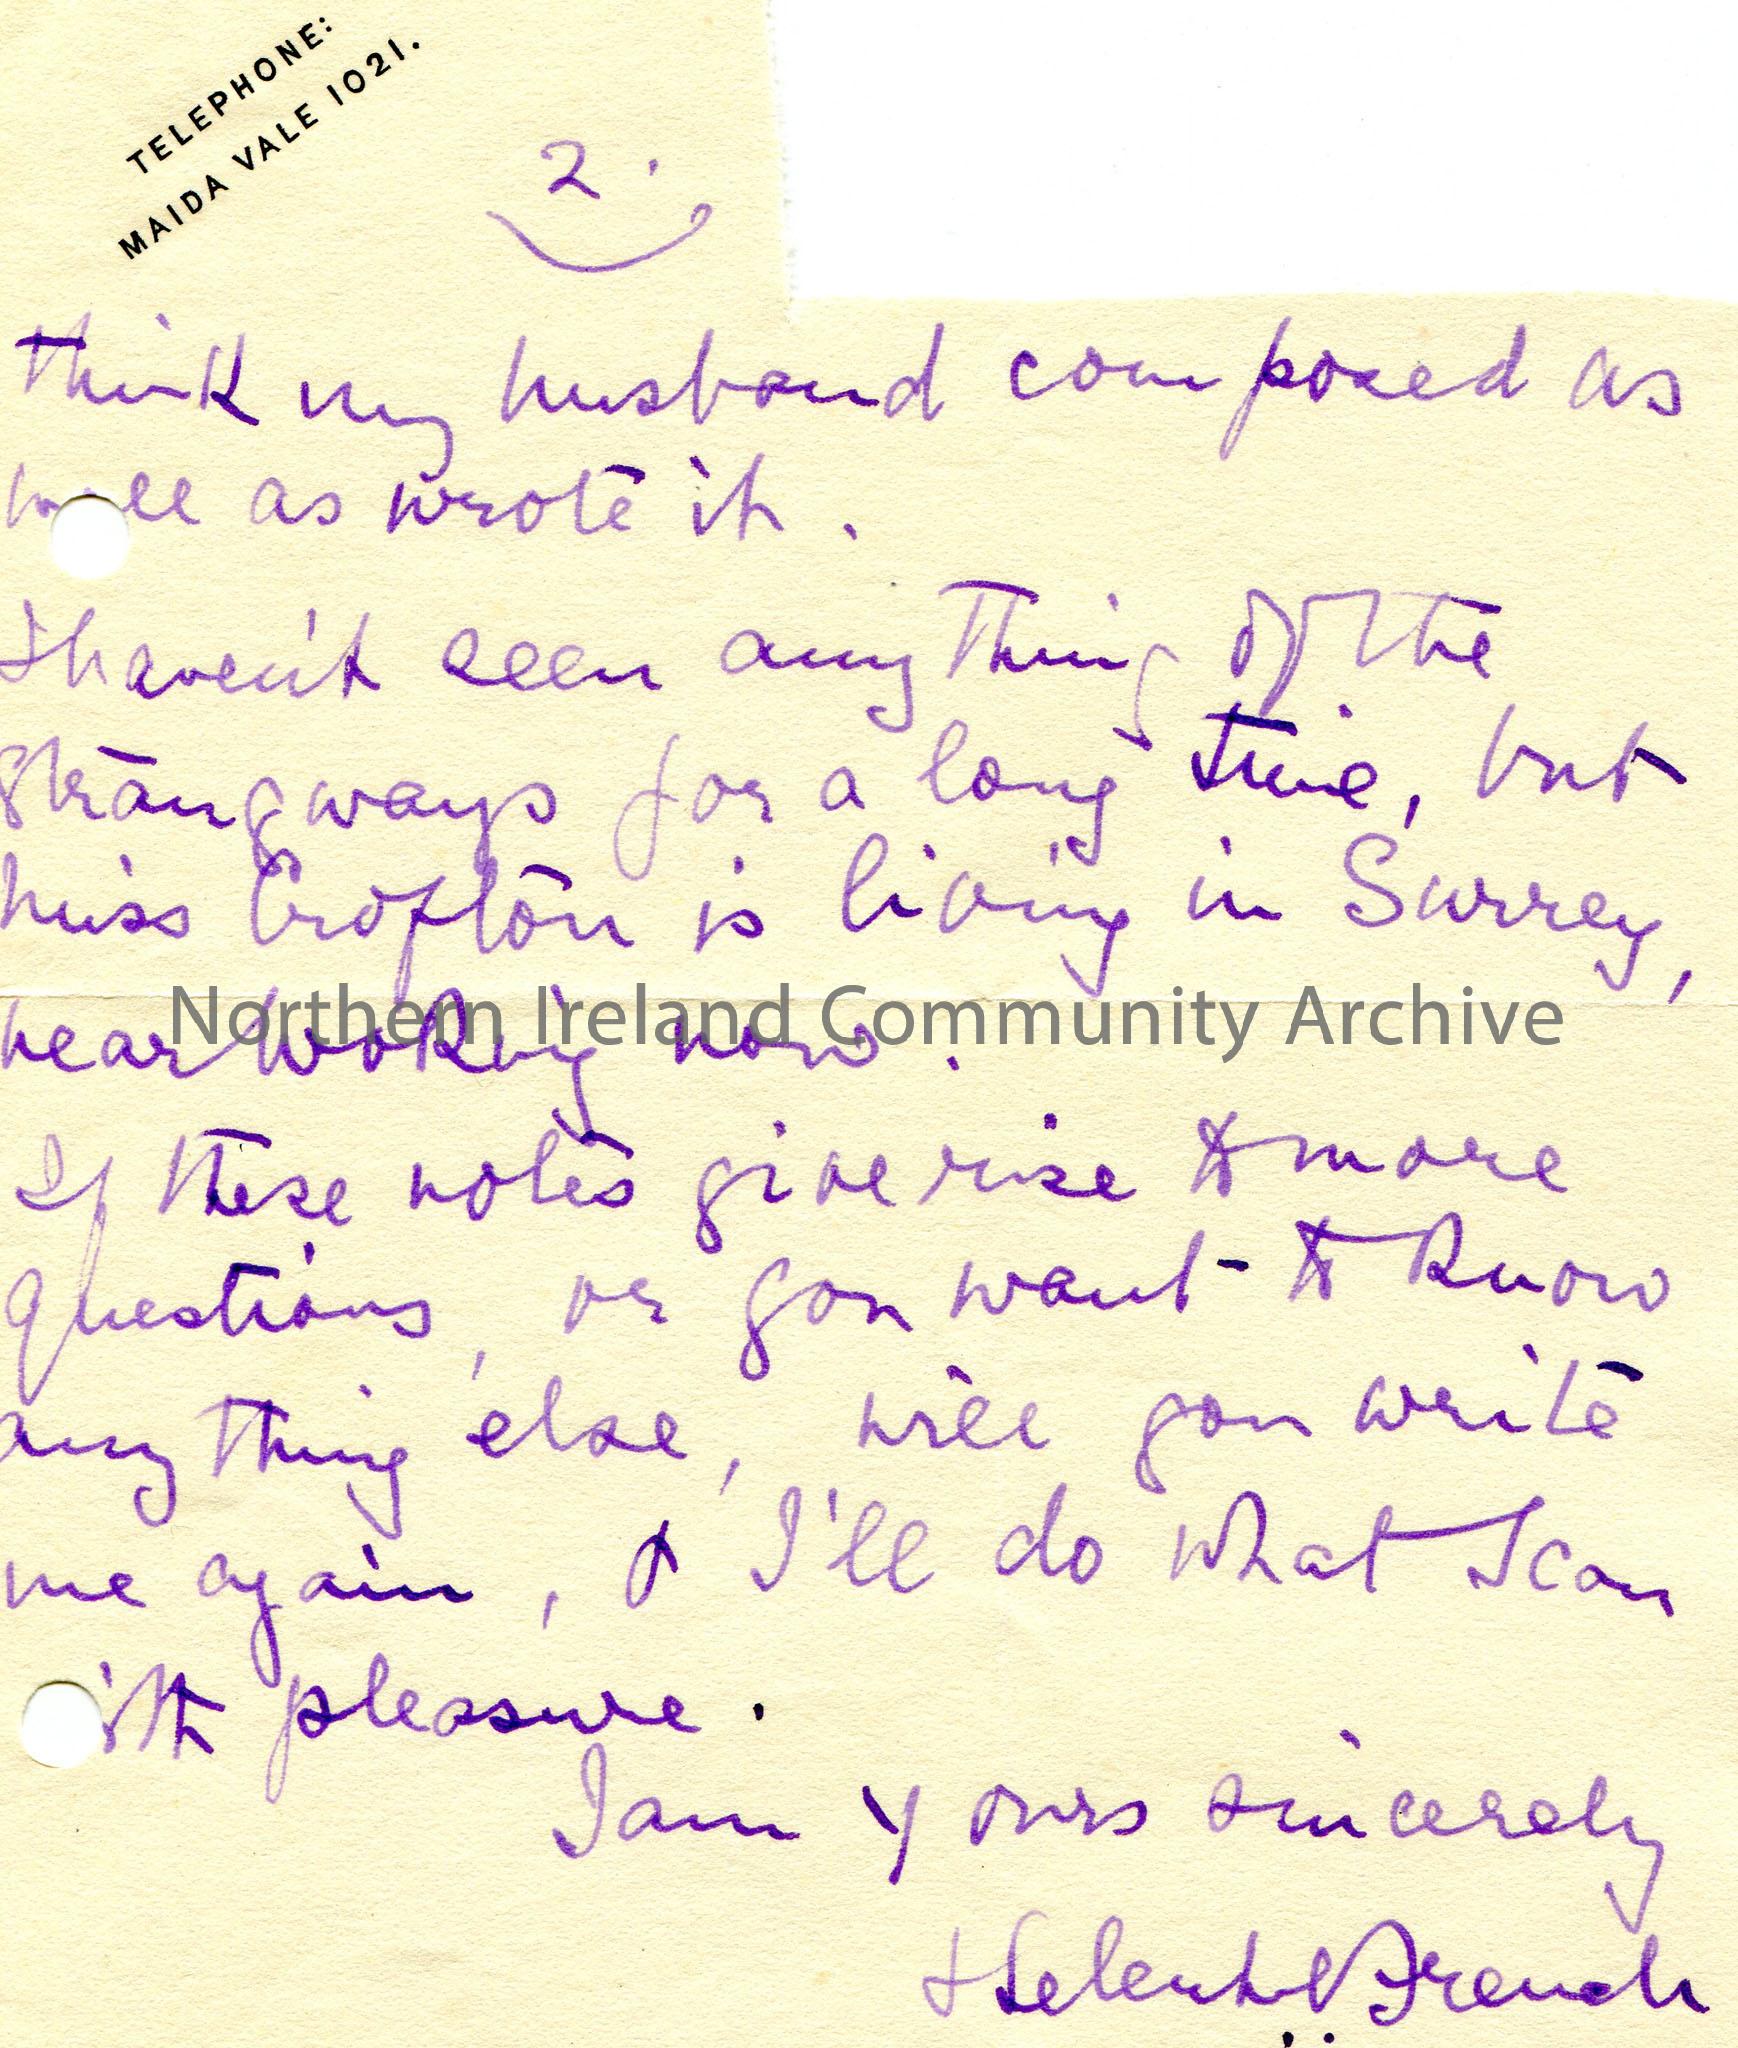 TELEPHONE:
MAIDA VALE 1021.
2.
think my husband composed as
well as wrote it.
I haven't seen anything of the
Strangways for a long time, but
Miss Crofton is living in Surrey,
near Woking now.
Northern Ireland Community Archive
If these notes give rise to more
questions, or you want to know
anything else, will you write
me again, & I'll do what I can
with pleasure.
I am yours sincerely
Helen French